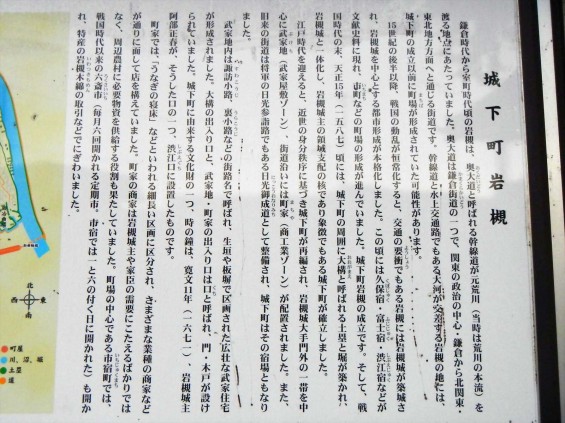 城下町岩槻
鎌倉時代から室町時代頃の岩槻は、奥大道と呼ばれる幹線道が元荒川（当時は荒川の本流）を
渡る地点にあたっていました。奥大道は鎌倉街道の一つで、関東の政治の中心・鎌倉から北関東・
東北地方方面へと通じる街道です。幹線道と水上交通路でもある大河が交差する岩槻の地には、
城下町の成立以前に町場が形成されていた可能性があります。
15世紀の後半以降、戦国の動乱が恒常化すると、交通の要衝でもある岩槻には岩槻城が築城さ
れ、岩槻城を中心とする都市形成が本格化しました。この頃には久保宿・富士宿・渋江宿などが
文献史料に現れ、市町などの町場の形成が進んでいました。城下町岩槻の成立です。そして、戦
国時代の末、天正15年（一五八七）頃には、城下町の周囲に大構と呼ばれる土塁と堀が築かれ、
岩槻城と一体化し、岩槻城主の領域支配の核であり象徴でもある城下町が確立しました。
江戸時代を迎えると、近世の身分秩序に基づき城下町が再編され、岩槻城大手門外の一帯を中
心に武家地（武家屋敷ゾーン）、街道沿いには町家（商工業ゾーン）が配置されました。また、
旧来の街道は将軍の日光参詣路でもある日光御成道として整備され、城下町はその宿場ともなり
ました。
武家地内は諏訪小路、裏小路などの街路名で呼ばれ、生垣や板塀で区画された広壮な武家住宅
が形成されました。大構の出入り口と、武家地・町家の出入り口は口と呼ばれ、門・木戸が設け
られていました。城下町に由来する文化財の一つ、時の鐘は、寛文11年（一六七一）、岩槻城主
阿部正春が、そうした口の一つ、渋江口に設置したものです。
町家では「うなぎの寝床」などといわれる細長い区画に区分され、さまざまな業種の商家など
が通りに面して店を構えていました。町家の商家は岩槻城主や家臣の需要にこたえるばかりでは
なく、周辺農村に必要物資を供給する役割も果たしていました。町場の中心である市宿町では、
戦国時代以来の六斎市（毎月六回開かれる定期市。市宿では一と六の付く日に開かれた）も開か
れ、特産の岩槻木綿の取引などでにぎわいました。
北
西 東
南
町屋
川、沼、堀
土塁
道